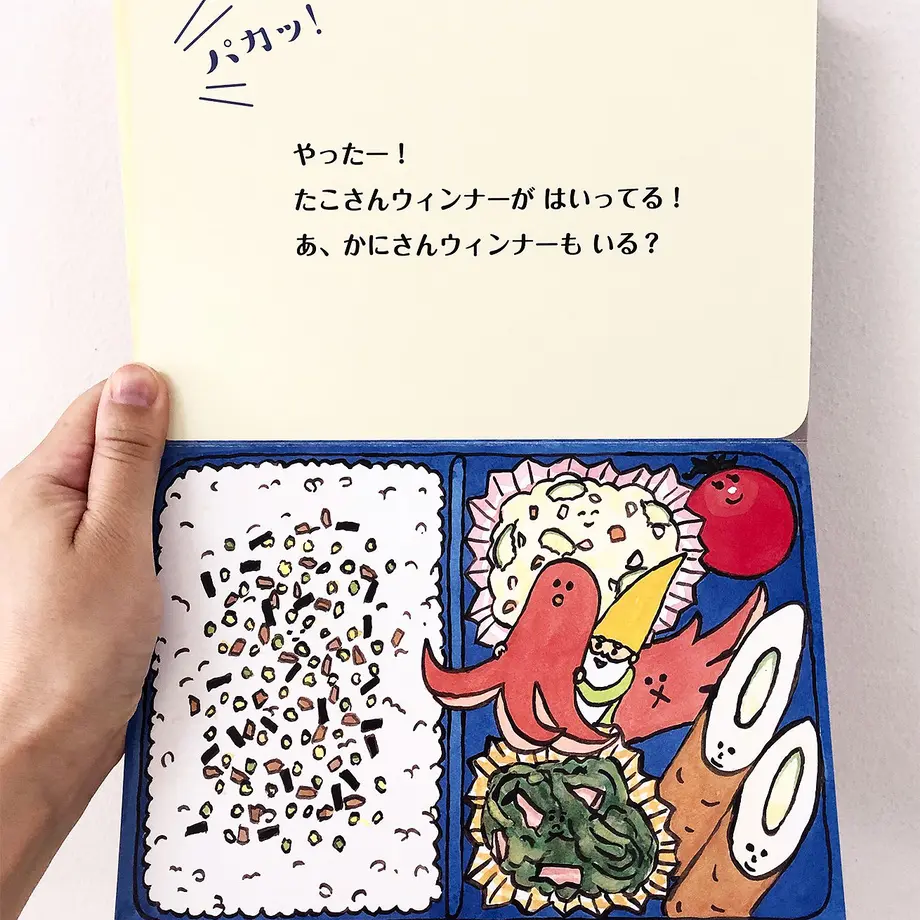 パカッ!
やったー!
たこさんウィンナーが はいってる!
あ、かにさんウィンナーも いる?